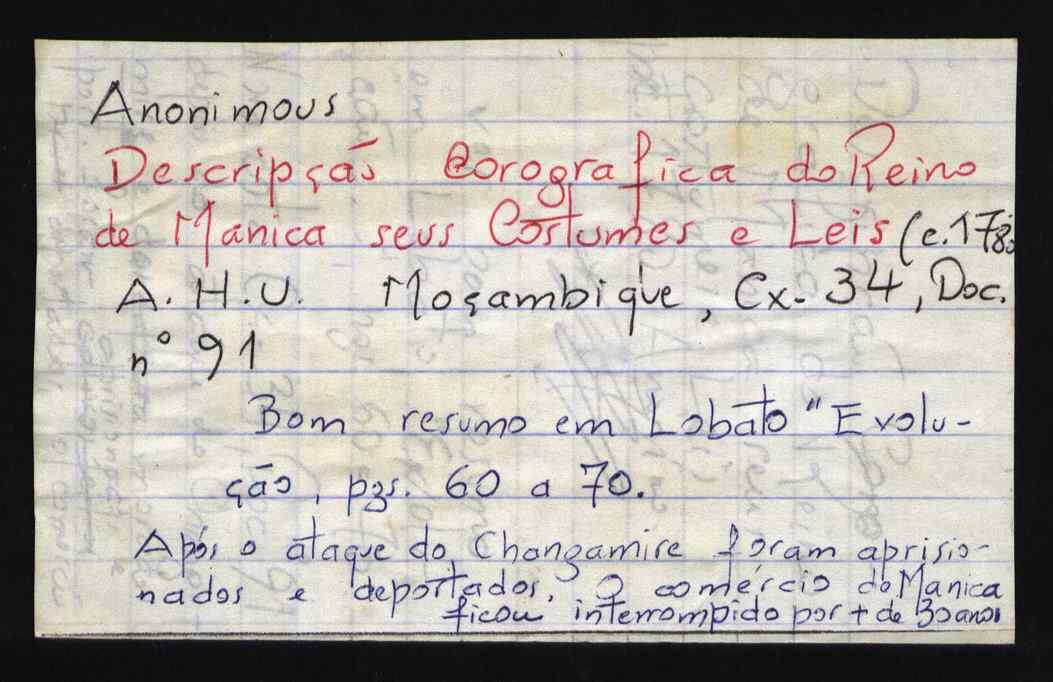 Anonimous
Descripçás Corografica do Reino
de Manica seus Costumes e Leis (c.178
A. H. U. Moçambique, Cx. 34, Doc.
nº 91
Bom resumo em Lobato "Evolu-
ção, pgs. 60 a 70.
Após o ataque do Changamire foram aprisio-
nados e deportados. O comércio do Manica
ficou interrompido por + de 30 anos